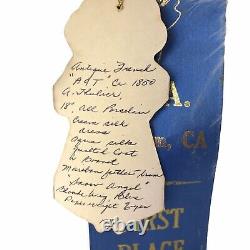 Antique French
"A & T" Ca 1850
A. Thuiller
18" All Porcelain
Cream silk
dress
aqua silk
quilted Coat
& Bonnet
Marabou feather trim
"Snow Angel"
Blonde Wig Blue
Paperweight Eyes
A.
, CA
FIRST
PLACE